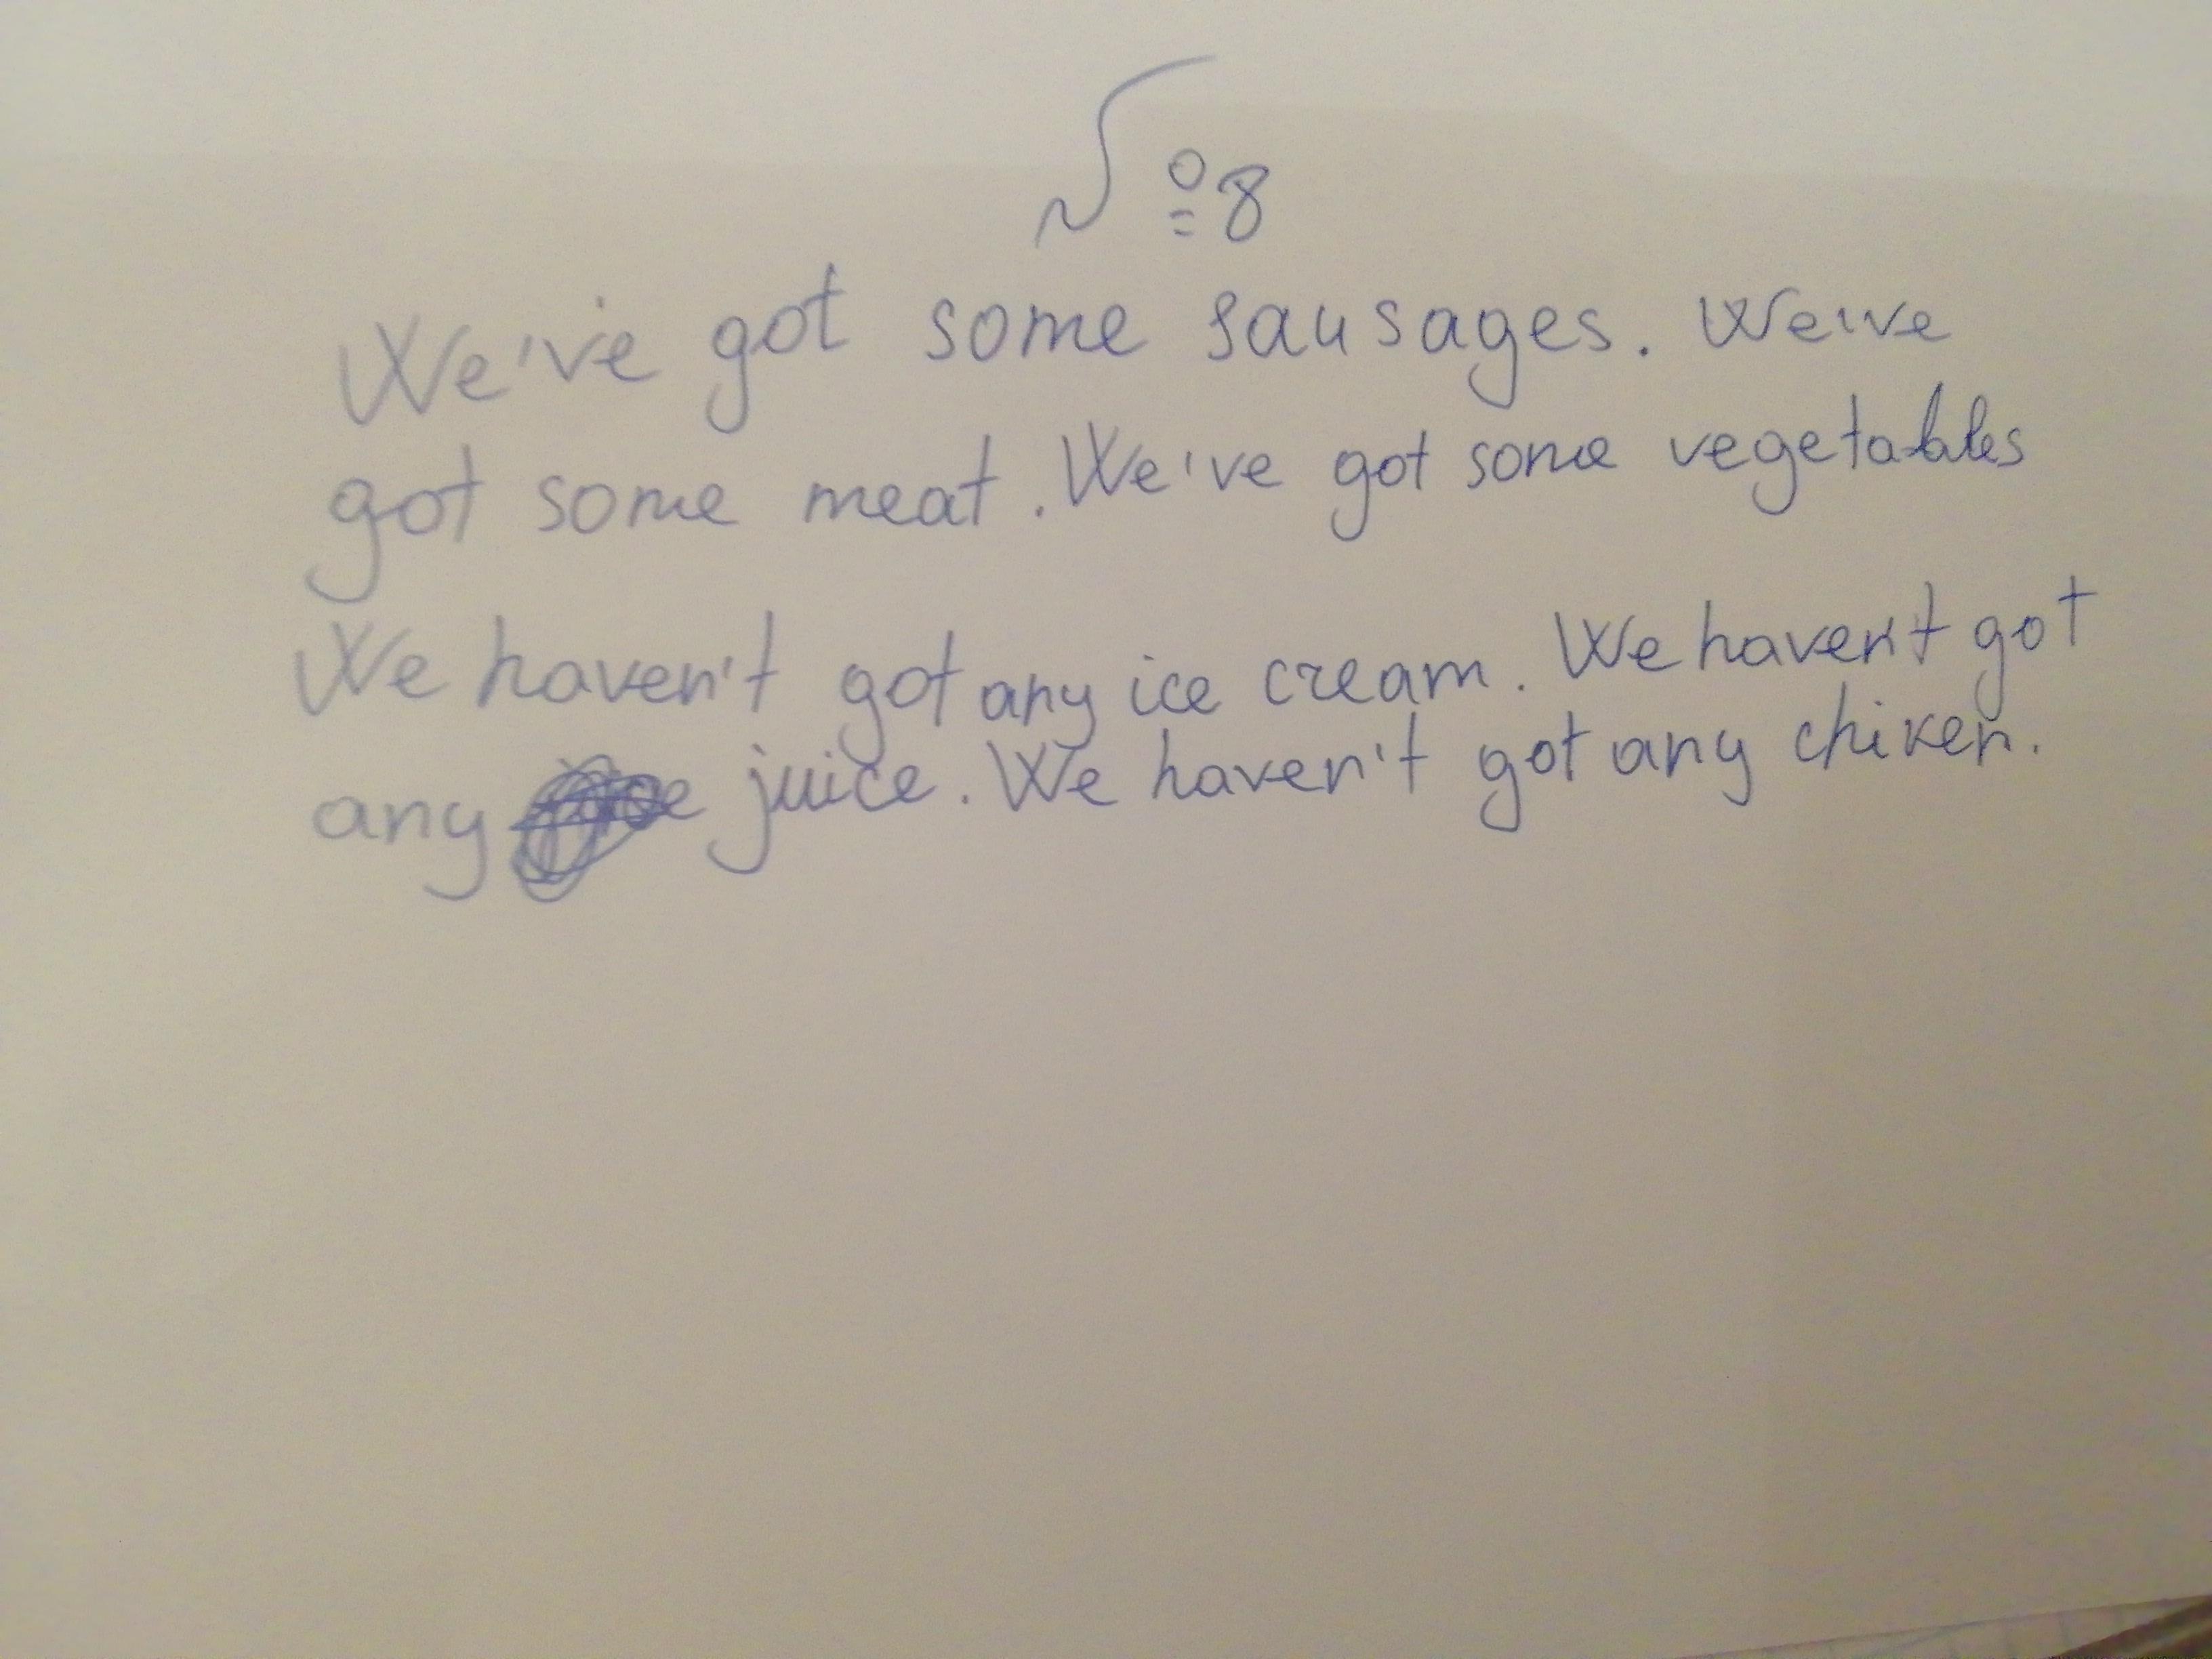 №8
We've got some sausages. We've
got some meat. We've got some vegetables
We haven't got any ice cream. We haven't got
any juice. We haven't got any chiken.